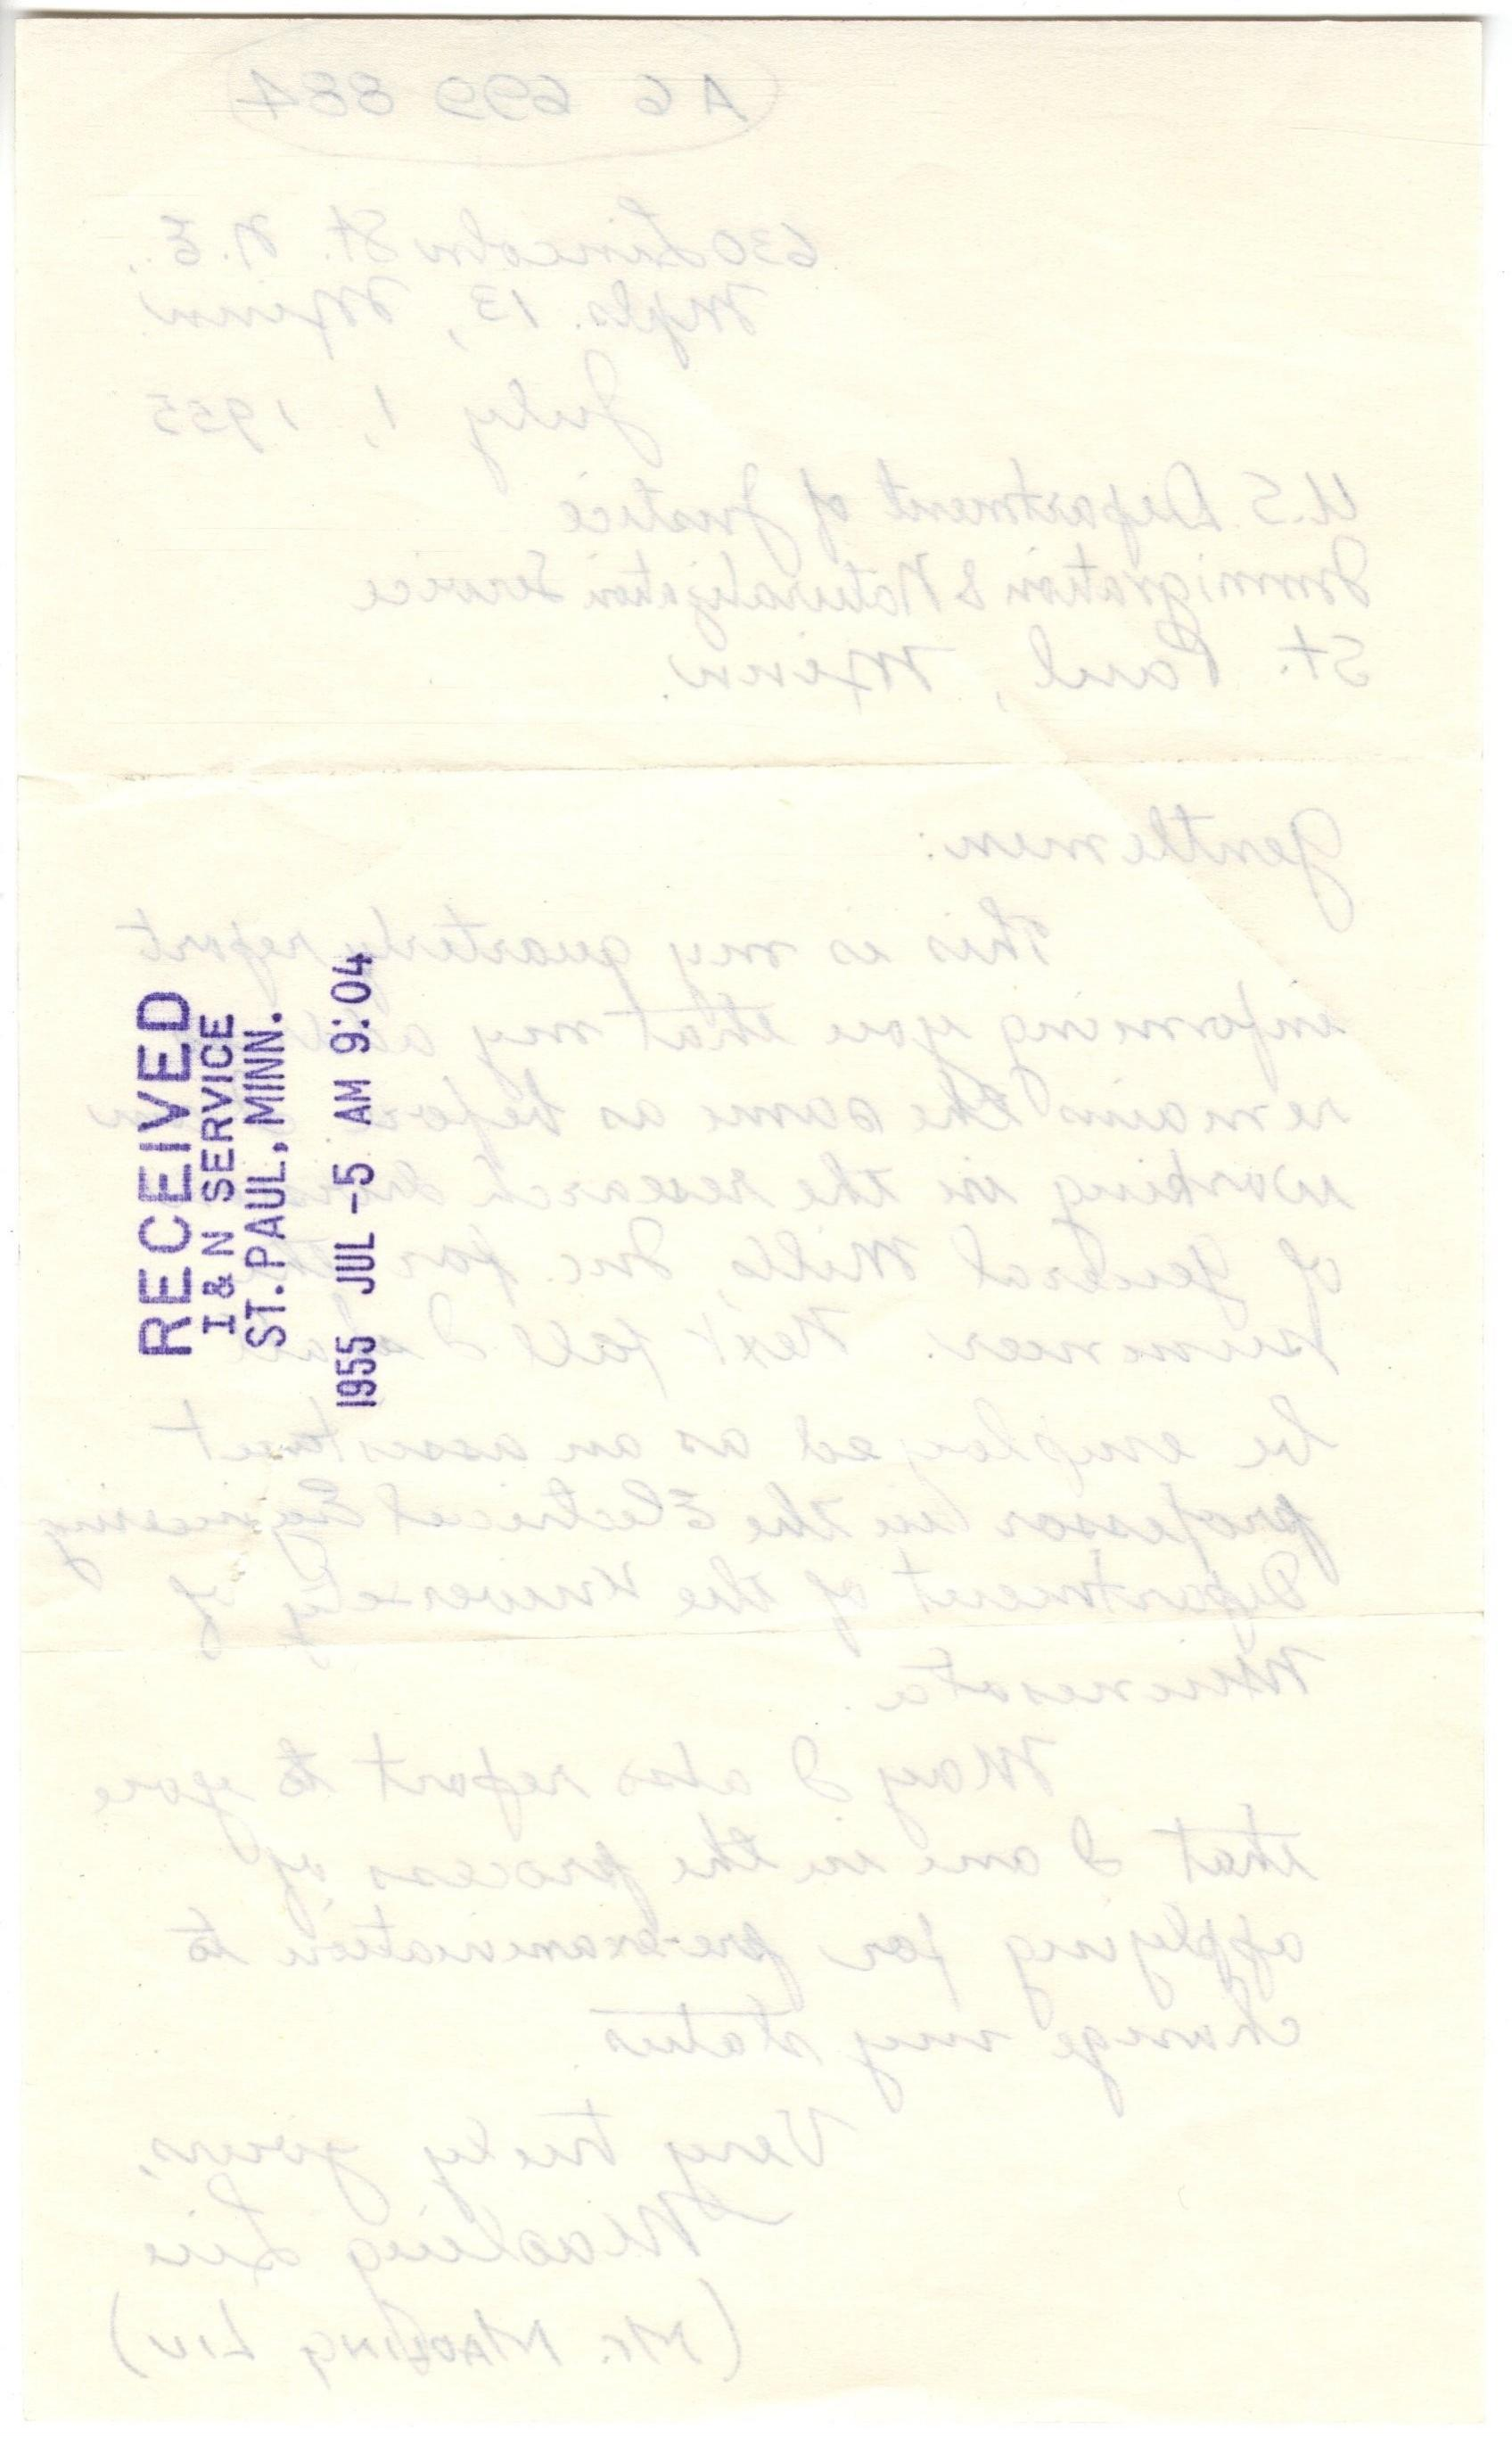 A6 699 884
630 Lincoln St. N.E.,
Mpls. 13, Minn
July 1, 1955
U.S. Department of Justice
Immigration & Naturalization Service
St. Paul, Minn.
Gentlemen:
This is my quarterly report
informing you that my
remains the same as before
working in the research
of General Mills, Inc. for the
summer. Next fall I shall
be employed as an assistant
professor in the Electrical Engineering
Department of the University of
Minnesota.
May I also report to you
that I am in the process of
applying for pre-examination to
change my status
Very truly yours,
Maoling Liu
(Mr. MAOLING LIU)
RECEIVED
I & N SERVICE
ST. PAUL, MINN.
1955 JUL -5 AM 9:04